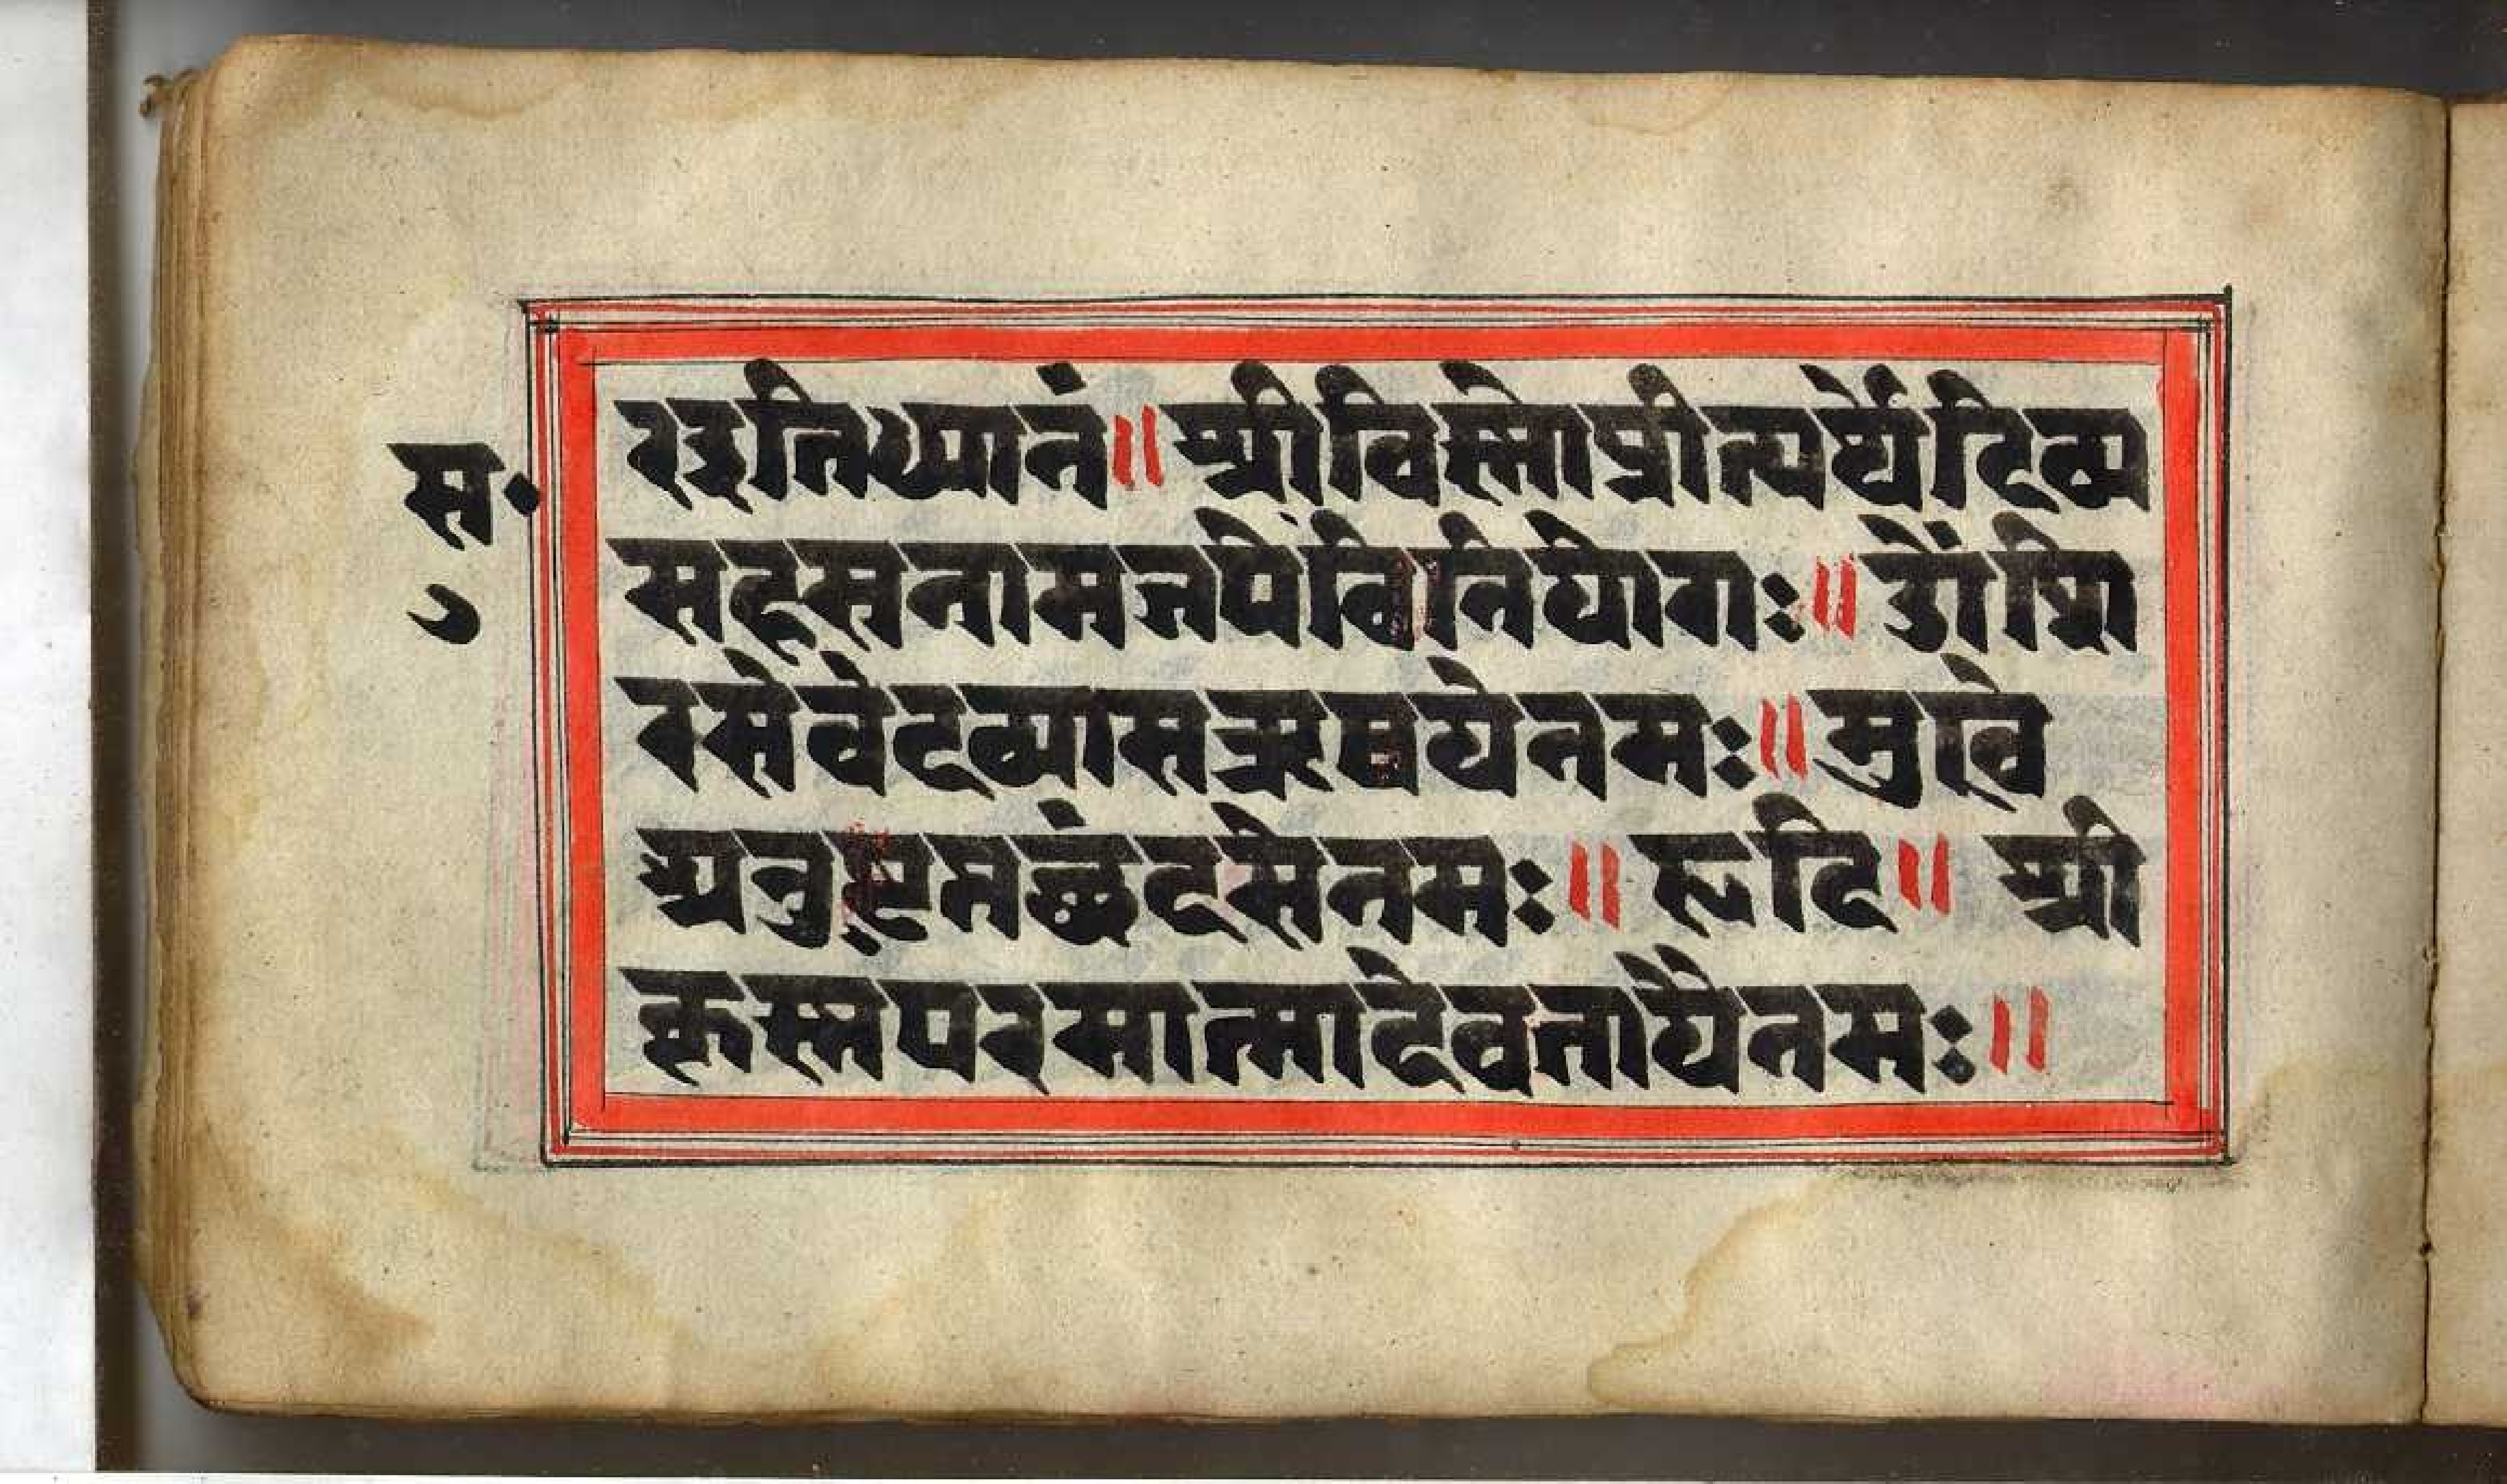 स॰
७
रइतिध्यानं॥श्रीविस्नोप्रीत्यर्थेदिव्य
सहस्रनामजपेविनियोगः॥ॐशि
रसेवेदव्यासऋषयेनमः॥मुखे
अनुष्टुप्छंदसेनमः॥हृदि॥श्री
कृस्नपरमात्मादेवतायैनमः॥